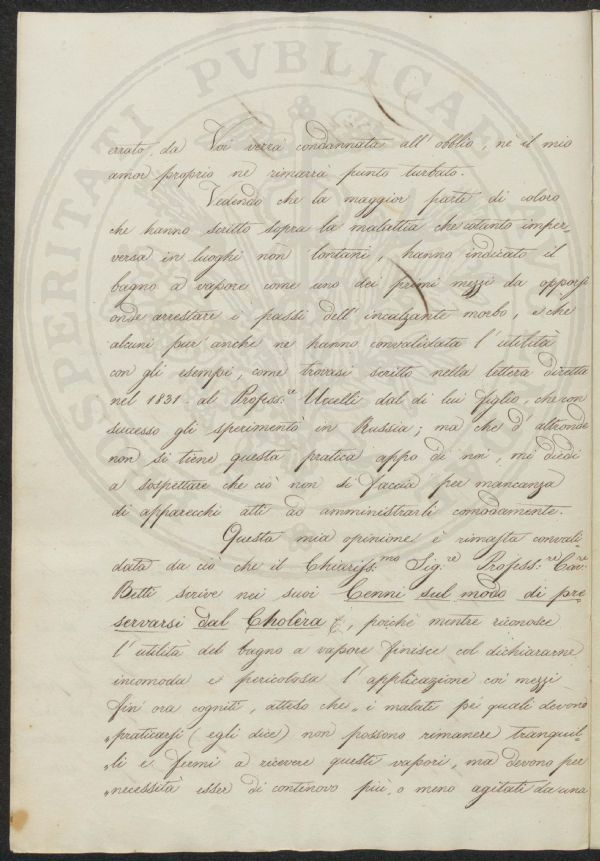 errato, da Voi verrà condannata all'obblio, nè il mio
amor proprio ne rimarrà punto turbato.
Vedendo che la maggior parte di coloro
che hanno scritto sopra la malattia che cotanto imper-
versa in luoghi non lontani, hanno indicato il
bagno a vapore come uno dei primi mezzi da opporsi
onde arrestare i passi dell'incalzante morbo, e che
alcuni pur'anche ne hanno convalidata l'utilità
con gli esempi, come trovasi scritto nella lettera diretta
nel 1831. al Profess.re Uccelli dal di lui figlio, che con
successo gli sperimentò in Russia; ma che d'altronde
non si tiene questa pratica appo di noi, mi diedi
a sospettare che ciò non si faccia per mancanza
di apparecchi atti ad amministrarli comodamente.
Questa mia opinione è rimasta convali-
data da ciò che il Chiariss.mo Sig.re Profess.re Cav.re
Betti scrive nei suoi Cenni sul modo di pre
servarsi dal Cholèra &, poichè mentre riconosce
l'utilità del bagno a vapore finisce col dichiararne
incomoda e pericolosa l'applicazione coi mezzi
fin'ora cogniti, atteso che „ i malati pe' quali devono
„ praticarsi (egli dice) non possono rimanere tranquil-
„ li e fermi a ricevere questi vapori, ma devono per
„ necessità esser di continovo più, o meno agitati da una
PROSPERITATI PVBLICAE